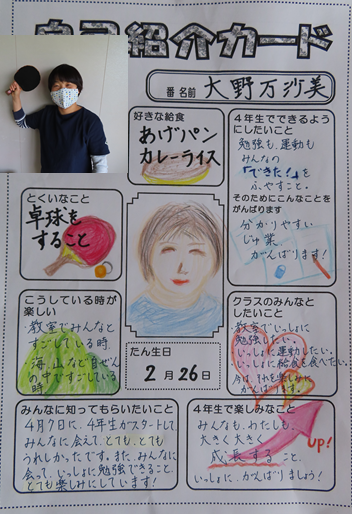 自己紹介カード
番 名前 大野万沙美
好きな給食
あげパン
カレーライス
4年生でできるよう
にしたいこと
勉強も、運動も
みんなの
「できた!」を
ふやすこと。
そのためにこんなことを
がんばります
分かりやすい
じゅ業
がんばります!
とくいなこと
卓球を
すること
こうしている時が
楽しい
・教室でみんなと
すごしている時
・海、山など自ぜん
の中ですごしている
時
たん生日
2月26日
クラスのみんなと
したいこと
教室でいっしょに
勉強したい。
いっしょに運動したい。
いっしょに給食を食べたい。
今は、それを楽しみに
がんばります!
みんなに知ってもらいたいこと
4月7日に、4年生がスタートして、
みんなに会えて、とても、とても
うれしかったです。また、みんなに
会って、いっしょに勉強できること、
とても楽しみにしています!
4年生で楽しみなこと
みんなも、わたしも、
大きく大きく
成長すること。
UP!
いっしょに、がんばりましょう!